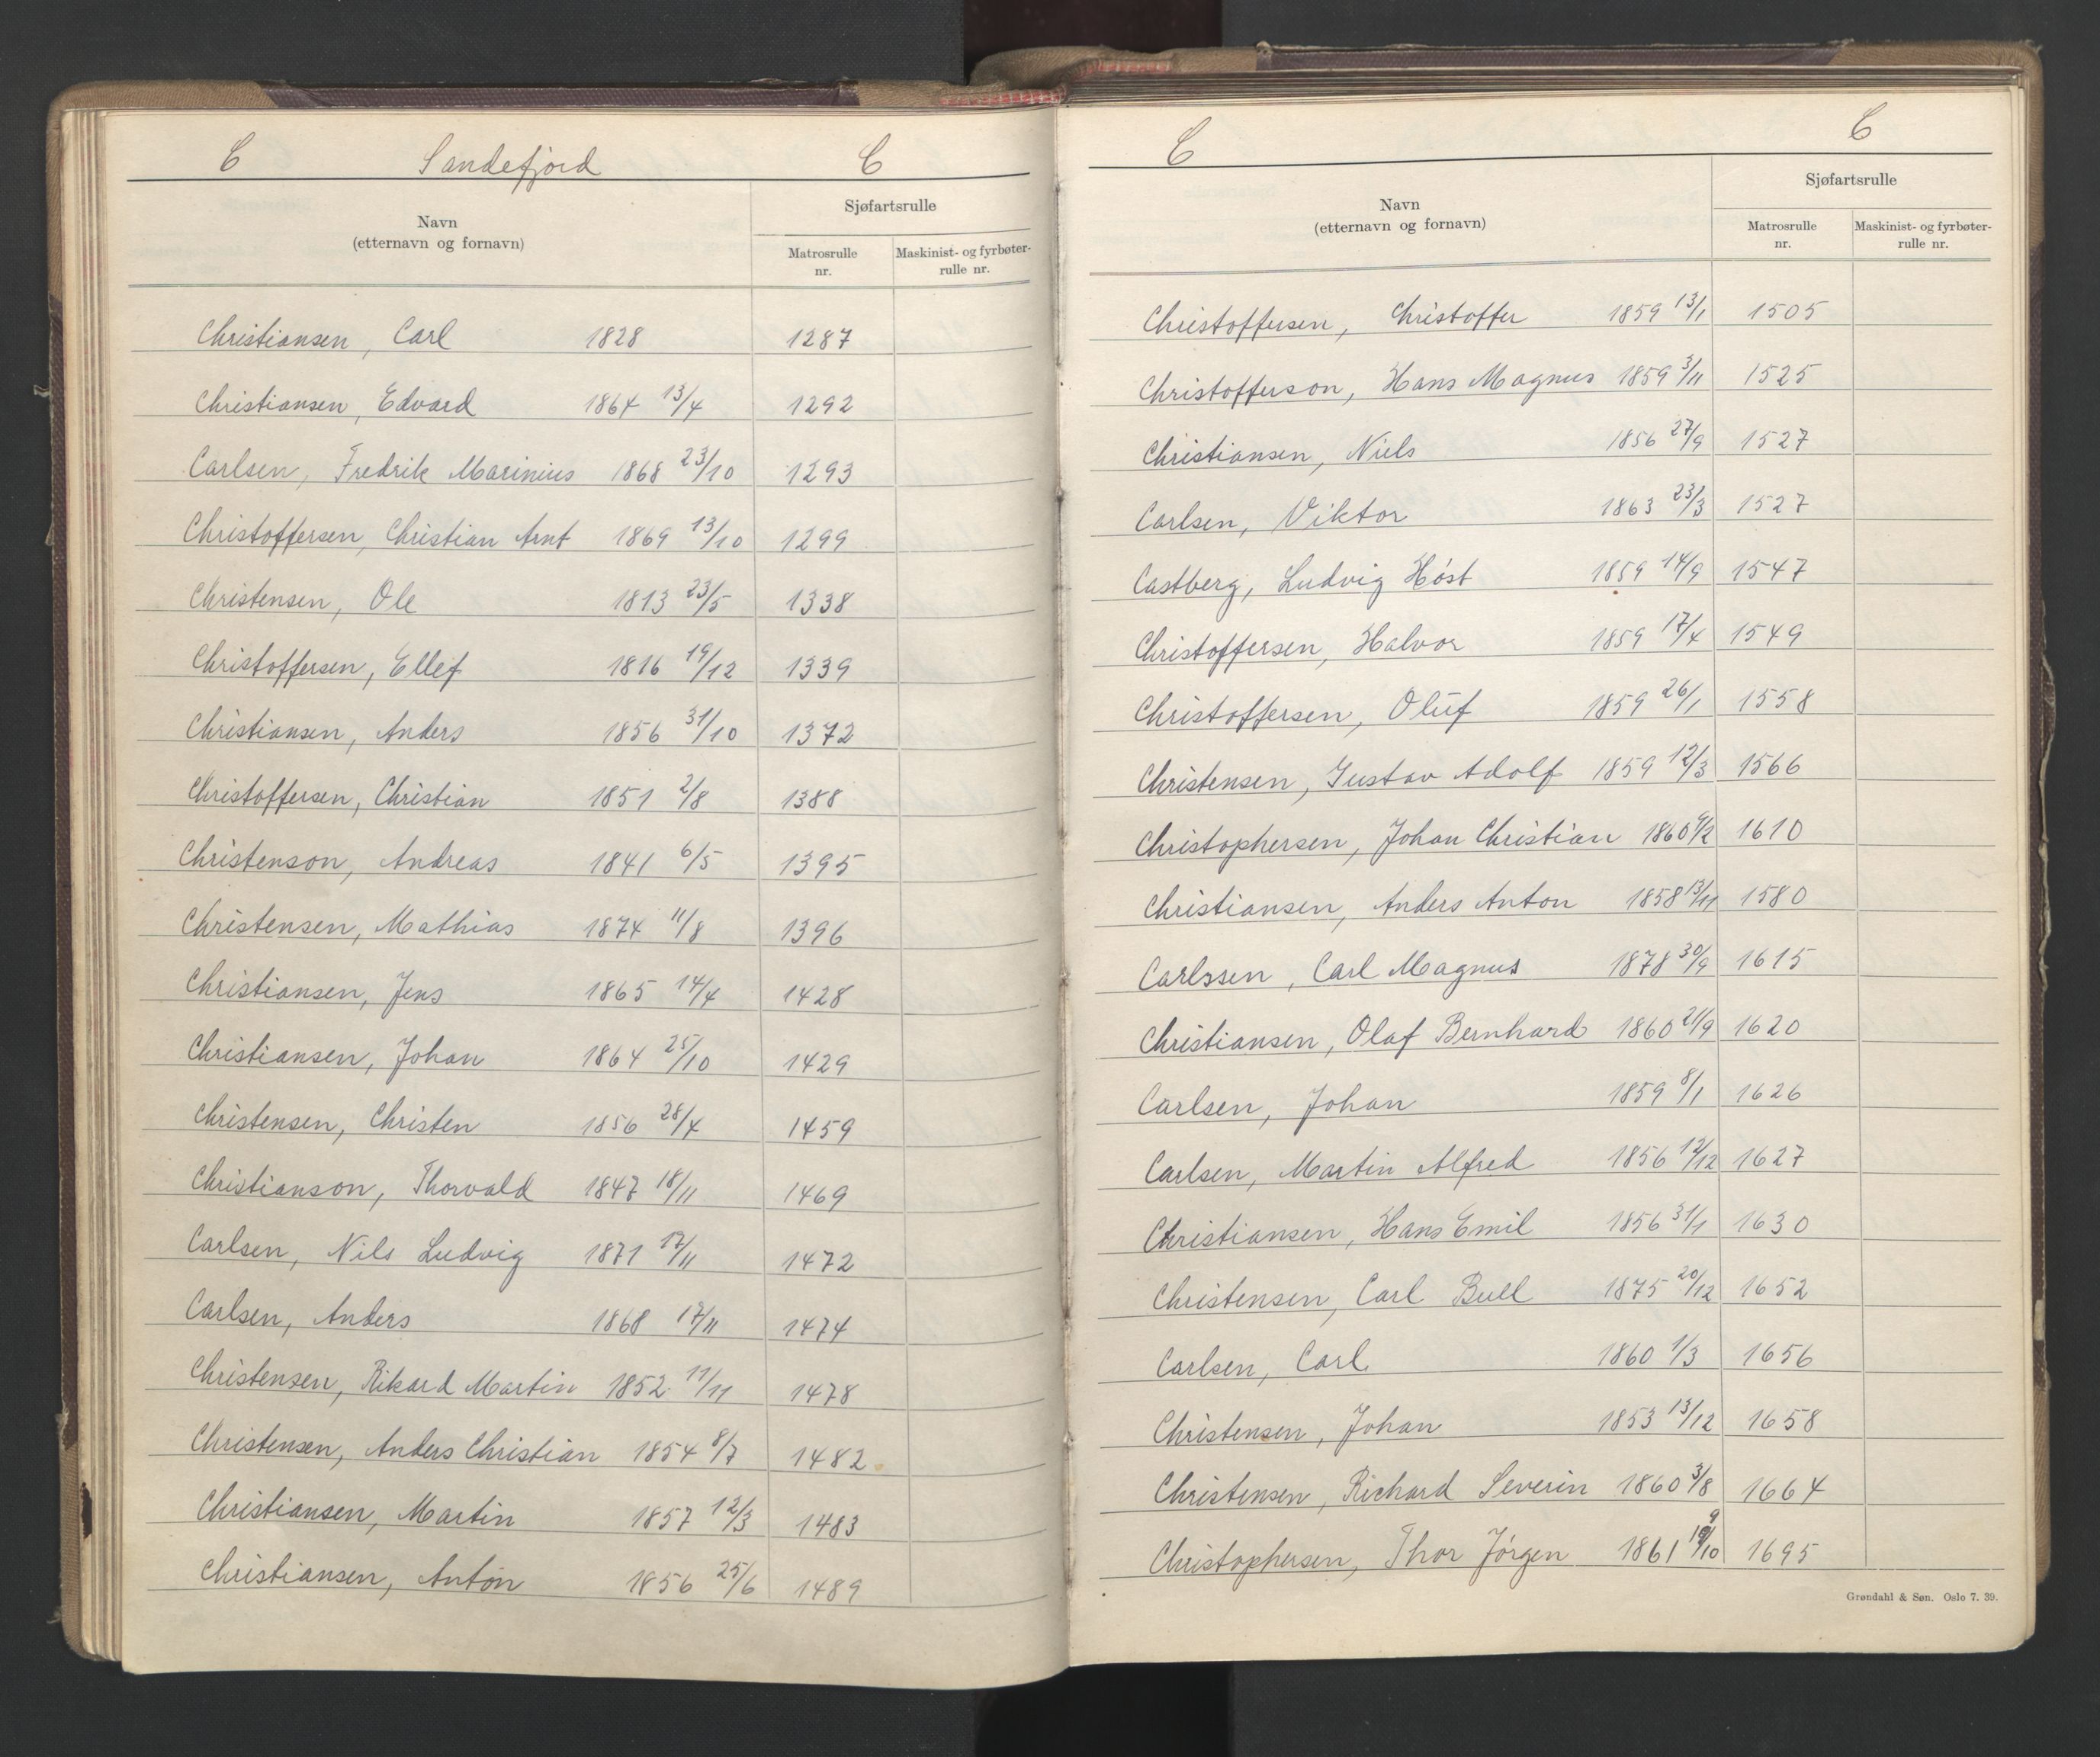 C Sandefjord C
Navn
(etternavn og fornavn)
Sjøfartsrulle
Matrosrulle
nr.
Maskinist- og fyrbøter-
rulle nr.
Christiansen, Carl 1828 1287
Christiansen, Edvard 1864 13/4 1292
Carlsen, Fredrik Marinius 1868 23/10 1293
Christoffersen, Christian Arnt 1869 13/10 1299
Christensen, Ole 1813 23/5 1338
Christoffersen, Ellef 1816 19/12 1339
Christiansen, Anders 1856 31/10 1372
Christoffersen, Christian 1851 2/8 1388
Christenson, Andreas 1841 6/5 1395
Christensen, Mathias 1874 11/8 1396
Christiansen, Jens 1865 14/4 1428
Christiansen, Johan 1864 25/10 1429
Christensen, Christen 1856 28/4 1459
Christianson, Thorvald 1847 18/11 1469
Carlsen, Nils Ludvig 1871 17/11 1472
Carlsen, Anders 1868 17/11 1474
Christensen, Rikard Martin 1852 11/11 1478
Christensen, Anders Christian 1854 8/7 1482
Christiansen, Martin 1857 12/3 1483
Christiansen, Anton 1856 25/6 1489
C C
Navn
(etternavn og fornavn)
Sjøfartsrulle
Matrosrulle
nr.
Maskinist- og fyrbøter-
rulle nr.
Christoffersen, Christoffer 1859 13/1 1505
Christofferson, Hans Magnus 1859 3/11 1525
Christiansen, Niels 1856 27/9 1527
Carlsen, Viktor 1863 23/3 1527
Castberg, Ludvig Høst 1859 14/9 1547
Christoffersen, Halvor 1859 17/4 1549
Christoffersen, Oluf 1859 26/1 1558
Christensen, Gustav Adolf 1859 12/3 1566
Christophersen, Johan Christian 1860 1610
Christiansen, Anders Anton 1858 13/11 1580
Carlssen, Carl Magnus 1878 30/9 1615
Christiansen, Olaf Bernhard 1860 21/9 1620
Carlsen, Johan 1859 8/1 1626
Carlsen, Martin Alfred 1856 12/12 1627
Christiansen, Hans Emil 1856 31/1 1630
Christensen, Carl Bull 1875 20/12 1652
Carlsen, Carl 1860 1/3 1656
Christensen, Johan 1853 13/12 1658
Christensen, Richard Severin 1860 3/8 1664
Christophersen, Thor Jörgen 1861 1695
Grøndahl & Søn. Oslo 7. 39.